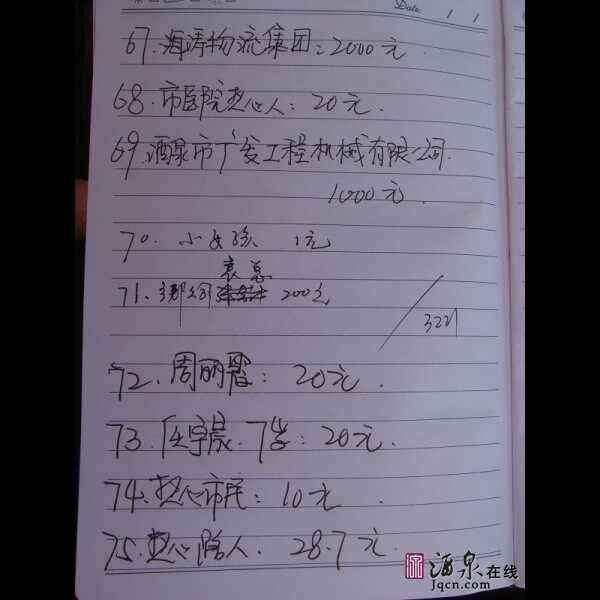 Date / /
67.海涛物流集团:2000元.
68.市医院热心人:20元.
69.酒泉市广发工程机械有限公司.
1000元.
70.小女孩 1元
袁总
71. 200元
3221
72.周丽:20元.
73.宇晨.7岁:20元.
74.热心市民:10元
75.热心路人.28.7元.
酒泉在线
Jqcn.com